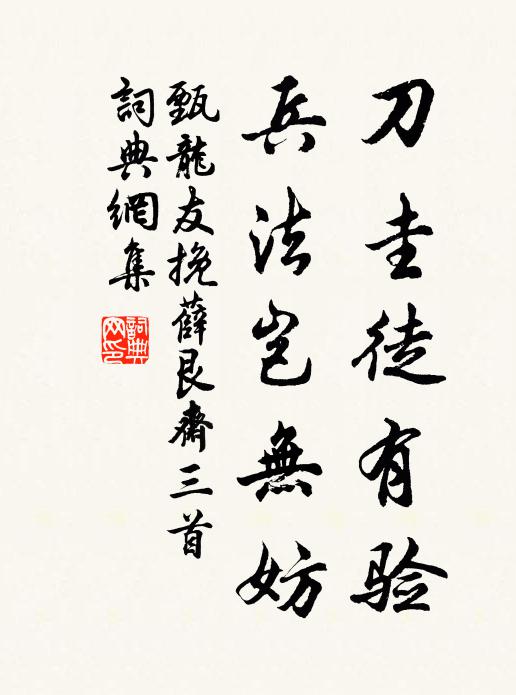 刀圭徒有验
兵法岂無妨
甄龍友挽薛艮齋三首
詞典網集
詞典网印